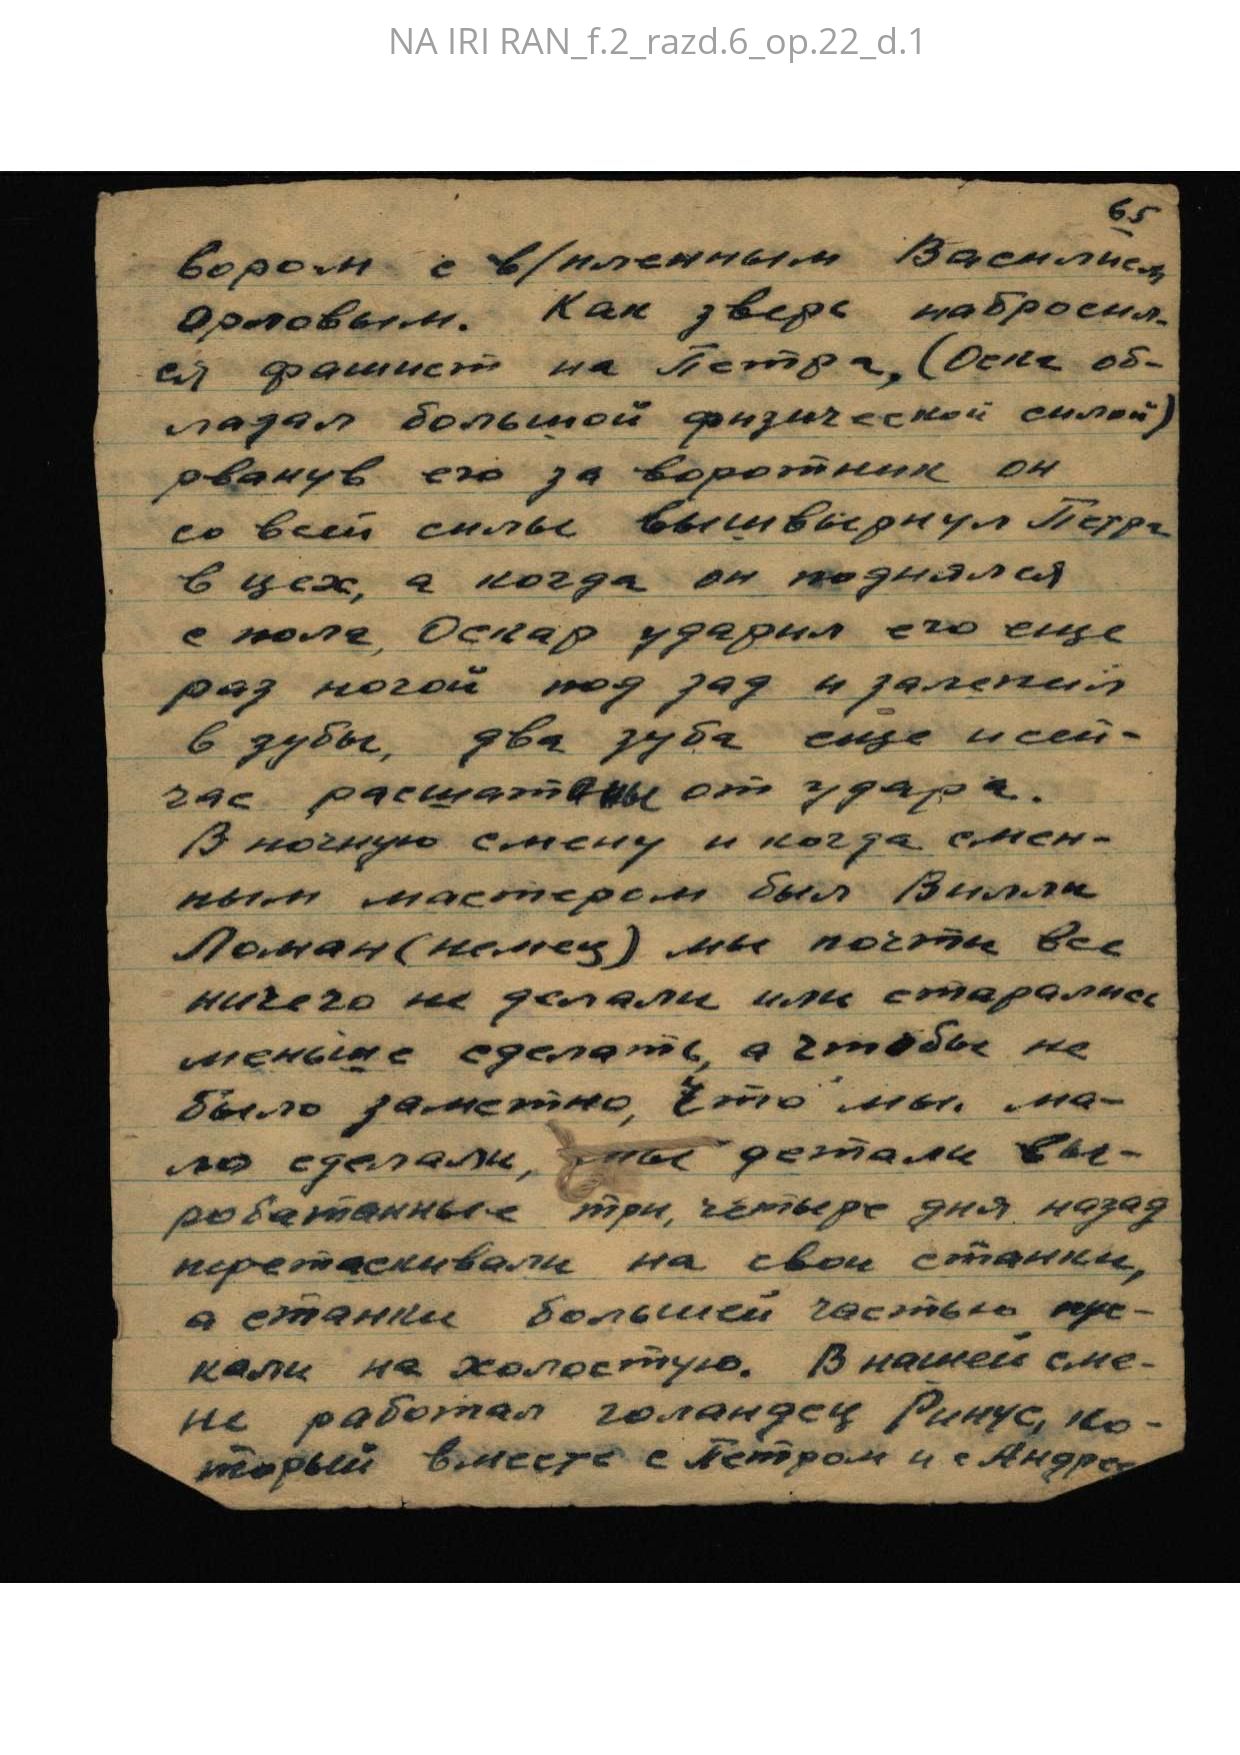 NA IRI RAN_f.2_razd.6_op.22_d.1
65
вором с в/пленным Василием
Орловым. Как зверь набросил-
ся фашист на Петра, (Оска об-
ладал большой физической силой)
рванув его за воротник он
со всей силы вышвырнул Петра
в цех, а когда он поднялся
с пола, Оскар ударил его еще
раз ногой под зад и залепил
в зубы, два зуба еще и сей-
час расшатаны от удара.
В ночную смену и когда смен-
ным мастером был Вилли
Ломан (немец) мы почти все
ничего не делали или старались
меньше сделать, а чтобы не
было заметно, что мы ма-
ло сделали, мы детали вы-
робатанные три, четыре дня назад
перетаскивали на свои станки,
а станки большей частью
кали на холостую. В нашей сме-
не работал голандец Ринус, ко-
торый вместе с Петром и с Андрее